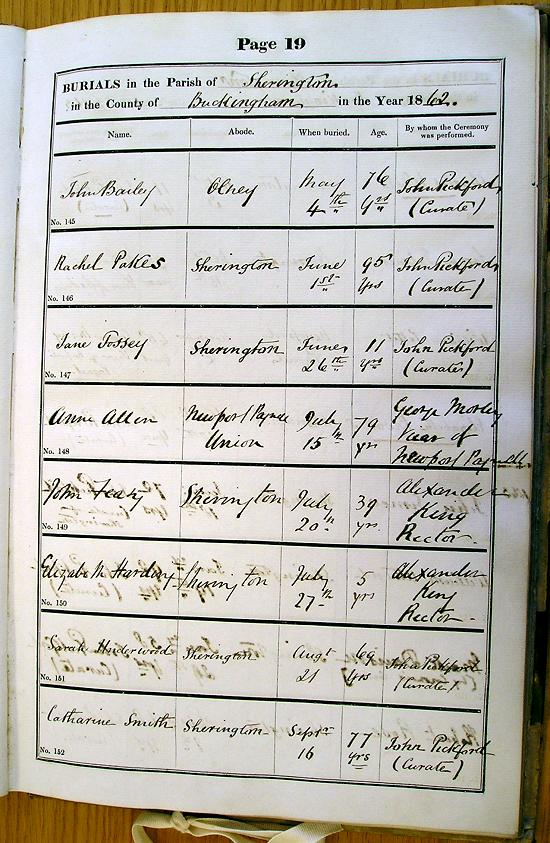 Page 19
BURIALS in the Parish of Sherington
in the County of Buckingham in the Year 1862.
Name. Abode. When buried. Age. By whom the Ceremony was performed.
John Bailey Olney May 76 John Pickford
No. 145 4th yrs (Curate)
Rachel Pakes Sherington June 95 John Pickford
No. 146 1st yrs (Curate)
Jane Tossey Sherington June 11 John Pickford
No. 147 26th yrs (Curate)
Anne Allen Newport Pagnell July 79 George Morley
Union 15th yrs Vicar of
No. 148 Newport Pagnell
John Sherington July 39 Alexander
No. 149 20th yrs. King
Rector
Elizabeth Harding Sherington July 5 Alexander
No. 150 27th yrs King
Rector
Sarah Underwood Sherington Augt 69 John Pickford
No. 151 21 yrs (Curate)
Catharine Smith Sherington Septr 77 John Pickford
No. 152 16 yrs (Curate)